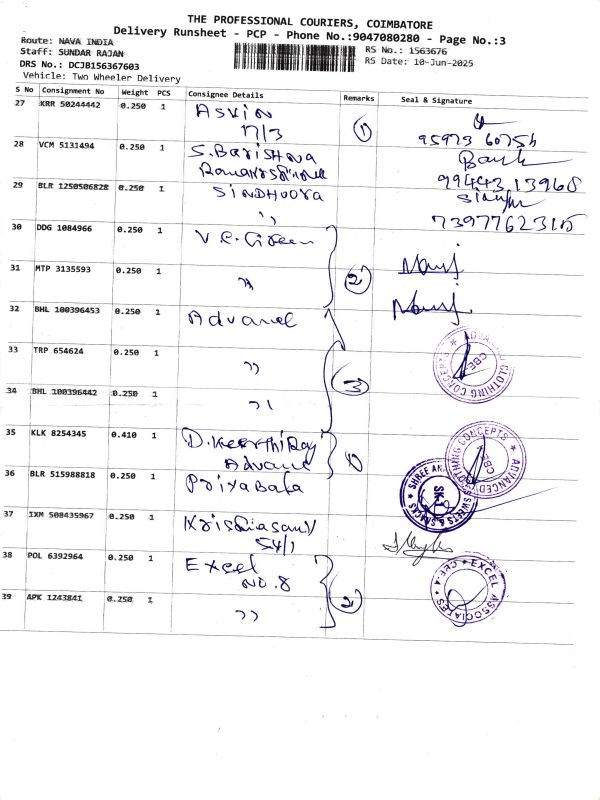 THE PROFESSIONAL COURIERS, COIMBATORE
Delivery Runsheet - PCP - Phone No.:9047080280 - Page No.:3
Route: NAVA INDIA
RS No.: 1563676
Staff: SUNDAR RAJAN
RS Date: 10-Jun-2025
DRS No.: DCJB156367603
Vehicle: Two Wheeler Delivery
S No Consignment No Weight PCS Consignee Details Remarks Seal & Signature
27 KRR 50244442 0.250 1 Asvin
17/3 1
95973 60754
28 VCM 5131494 0.250 1 S. Barishna
99443 13968
29 BLR 1250506828 0.250 1 Sindhoora
"
30 DDG 1084966 0.250 1 V.C. Green
2
31 MTP 3135593 0.250 1 "
32 BHL 100396453 0.250 1 Advance
33 TRP 654624 0.250 1 "
3
ADVANCED CLOTHING CONCEPTS CBE
34 BHL 100396442 0.250 1 "
35 KLK 8254345 0.410 1 D. Keerthi Raj
Advance 1
ADVANCED CLOTHING CONCEPTS CBE
36 BLR 515988818 0.250 1 Priya Bala
SHREE SWEETS & SNACKS
37 IXM 508435967 0.250 1
54/1
38 POL 6392964 0.250 1 Excel
NO. 8
2
EXCEL ASSOCIATES CBE-4
39 APK 1243841 0.250 1 "